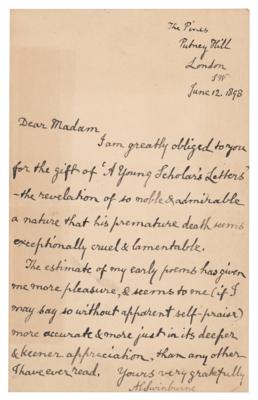 The Pines
Putney Hill
London
SW
June 12. 1898
Dear Madam
I am greatly obliged to you
for the gift of 'A Young Scholar's Letters'
– the revelation of so noble & admirable
a nature that his premature death seems
exceptionally cruel & lamentable.
The estimate of my early poems has given
me more pleasure, & seems to me (if I
may say so without apparent self-praise)
more accurate & more just in its deeper
& keener appreciation, than any other
I have ever read. Yours very gratefully
A C Swinburne